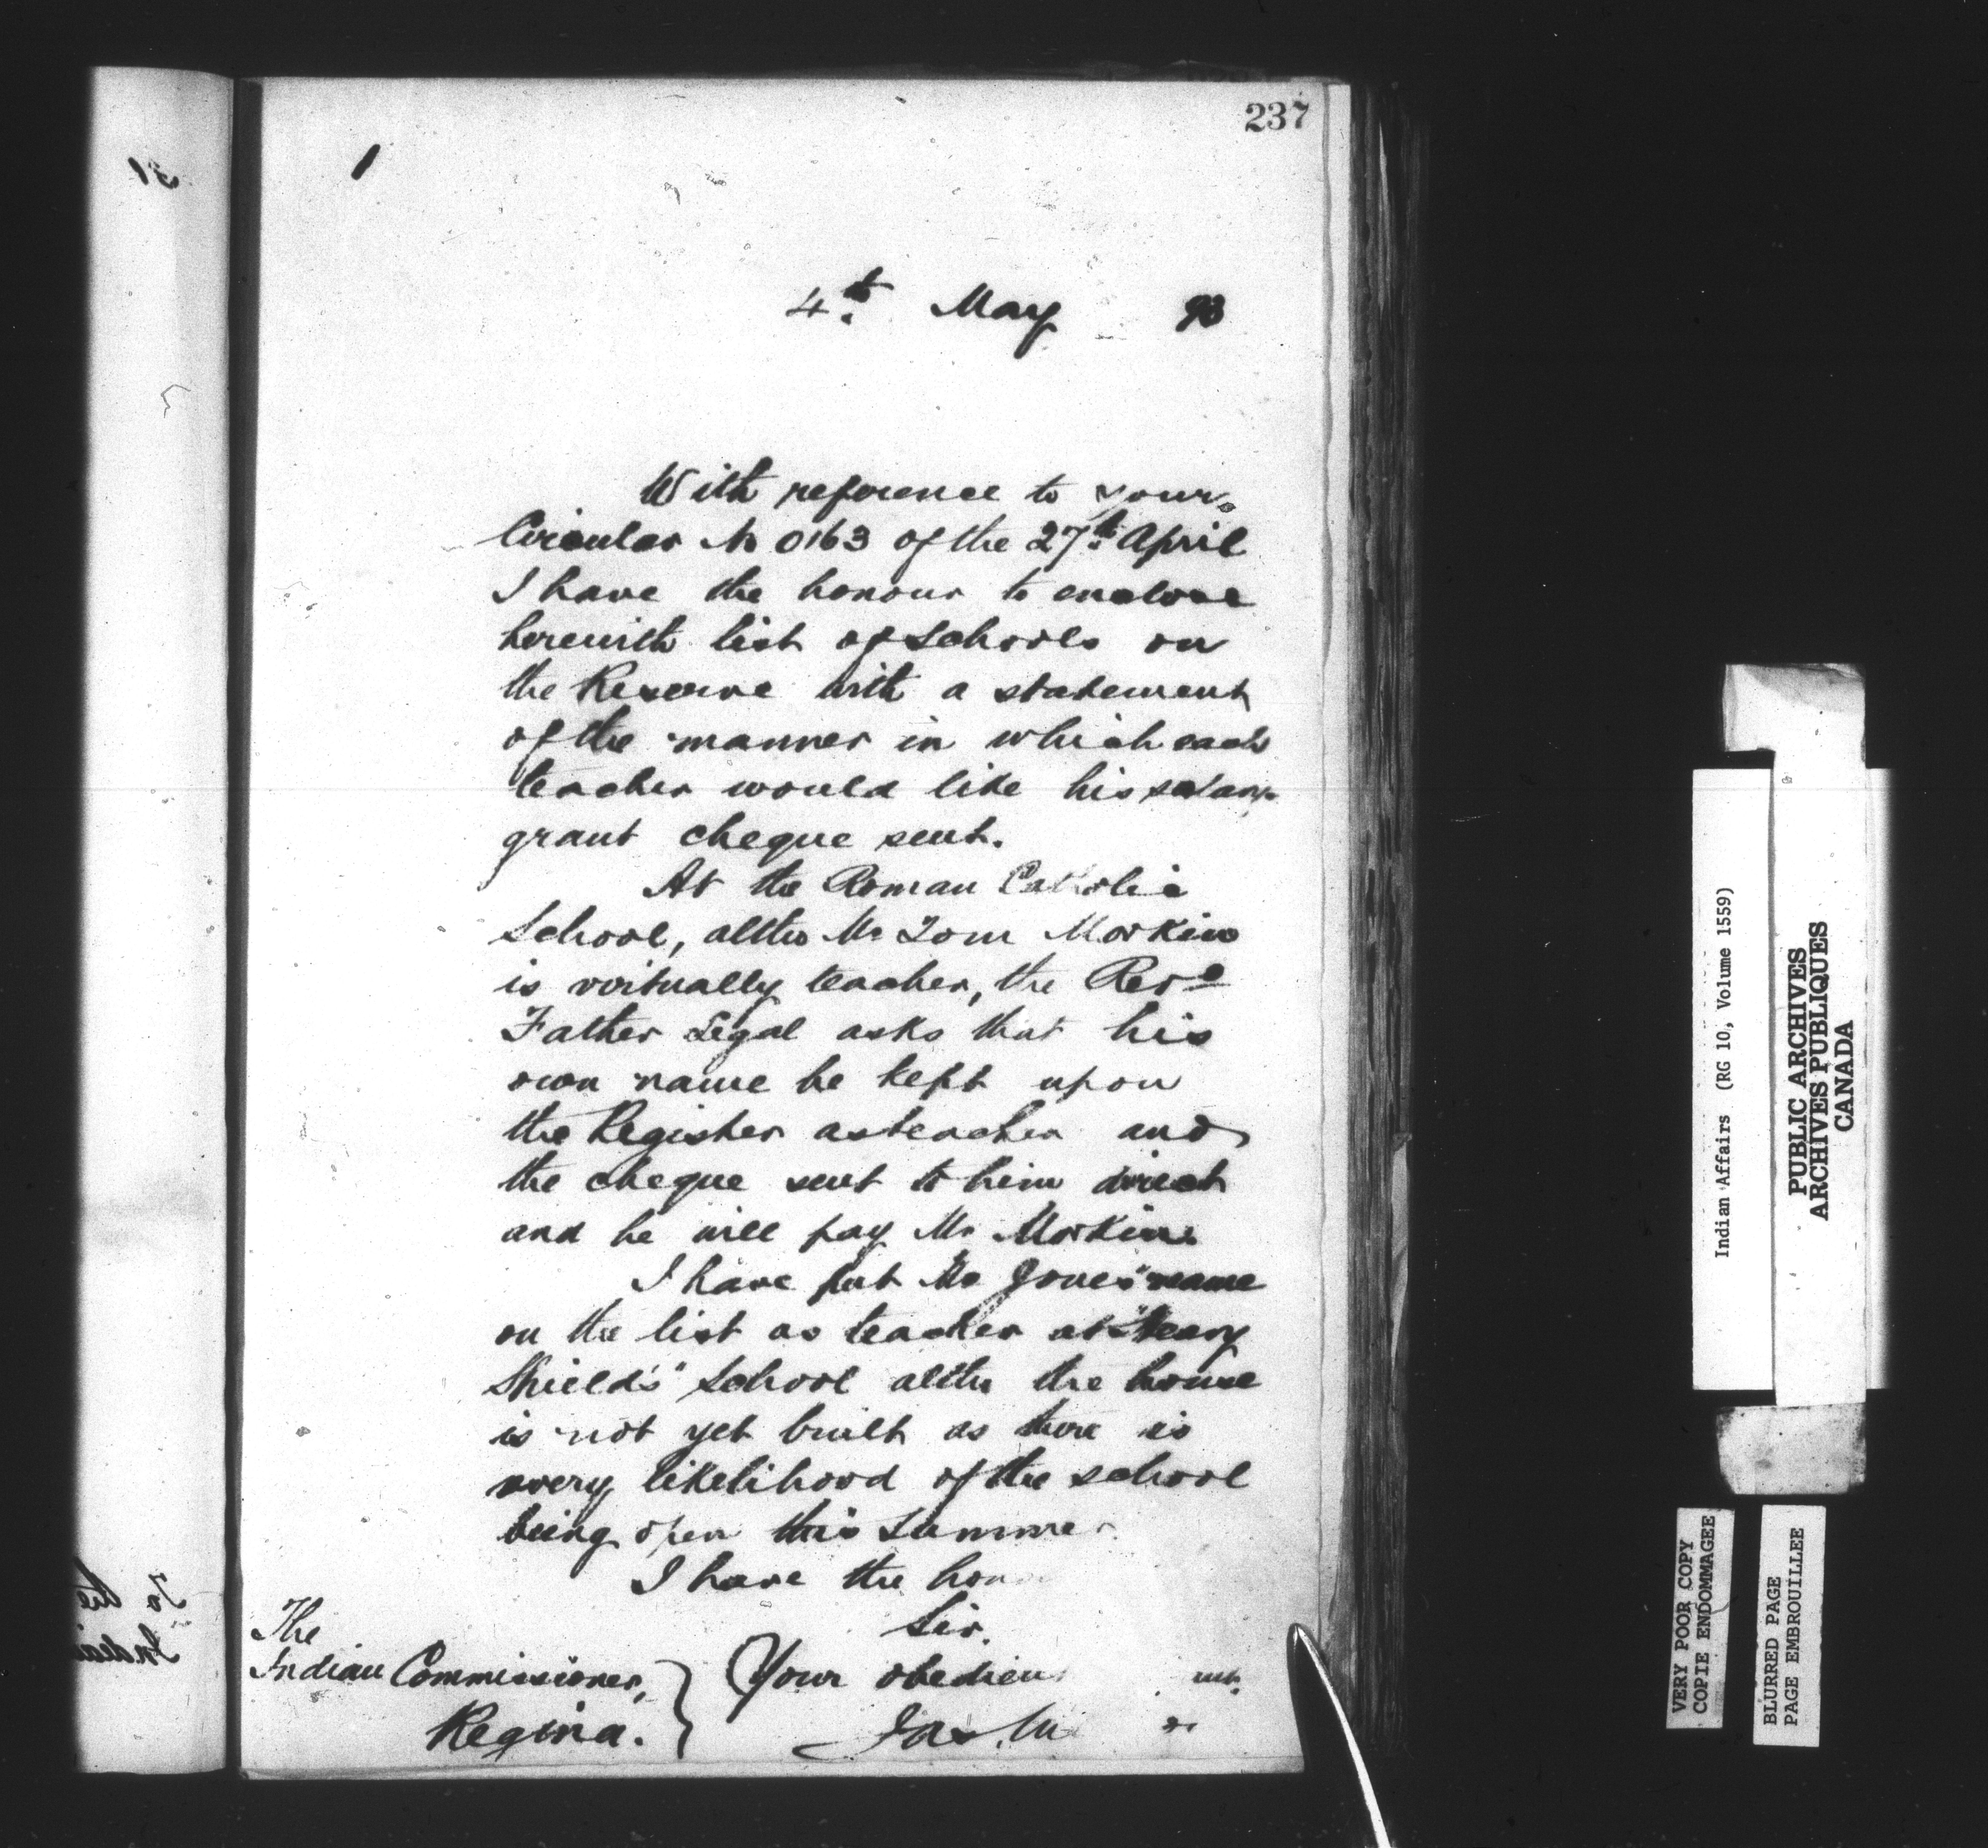 237
1
4th May 93
With reference to your
Circular No 0163 of the 27th April
I have the honour to enclose
herewith list of Schools on
the Reserve with a statement
of the manner in which each
teacher would like his salary
grant cheque sent.
At the Roman Catholic
School, altho Mr Tom
is virtually teacher, the Revd
Father Legal asks that his
own name be kept upon
the Register as teacher and
the cheque sent to him direct
and he will pay Mr
I have put Mr Jones' name
on the list as teacher at "Heavy
Shield's" School altho the house
is not yet built as there is
every likelihood of the school
being open this Summer
I have the hono
Sir,
Your obedien
Jas. W
The
Indian Commissioner,
Regina.
Indian Affairs (RG 10, Volume 1559)
PUBLIC ARCHIVES
ARCHIVES PUBLIQUES
CANADA
VERY POOR COPY
COPIE ENDOMMAGEE
BLURRED PAGE
PAGE EMBROUILLEE